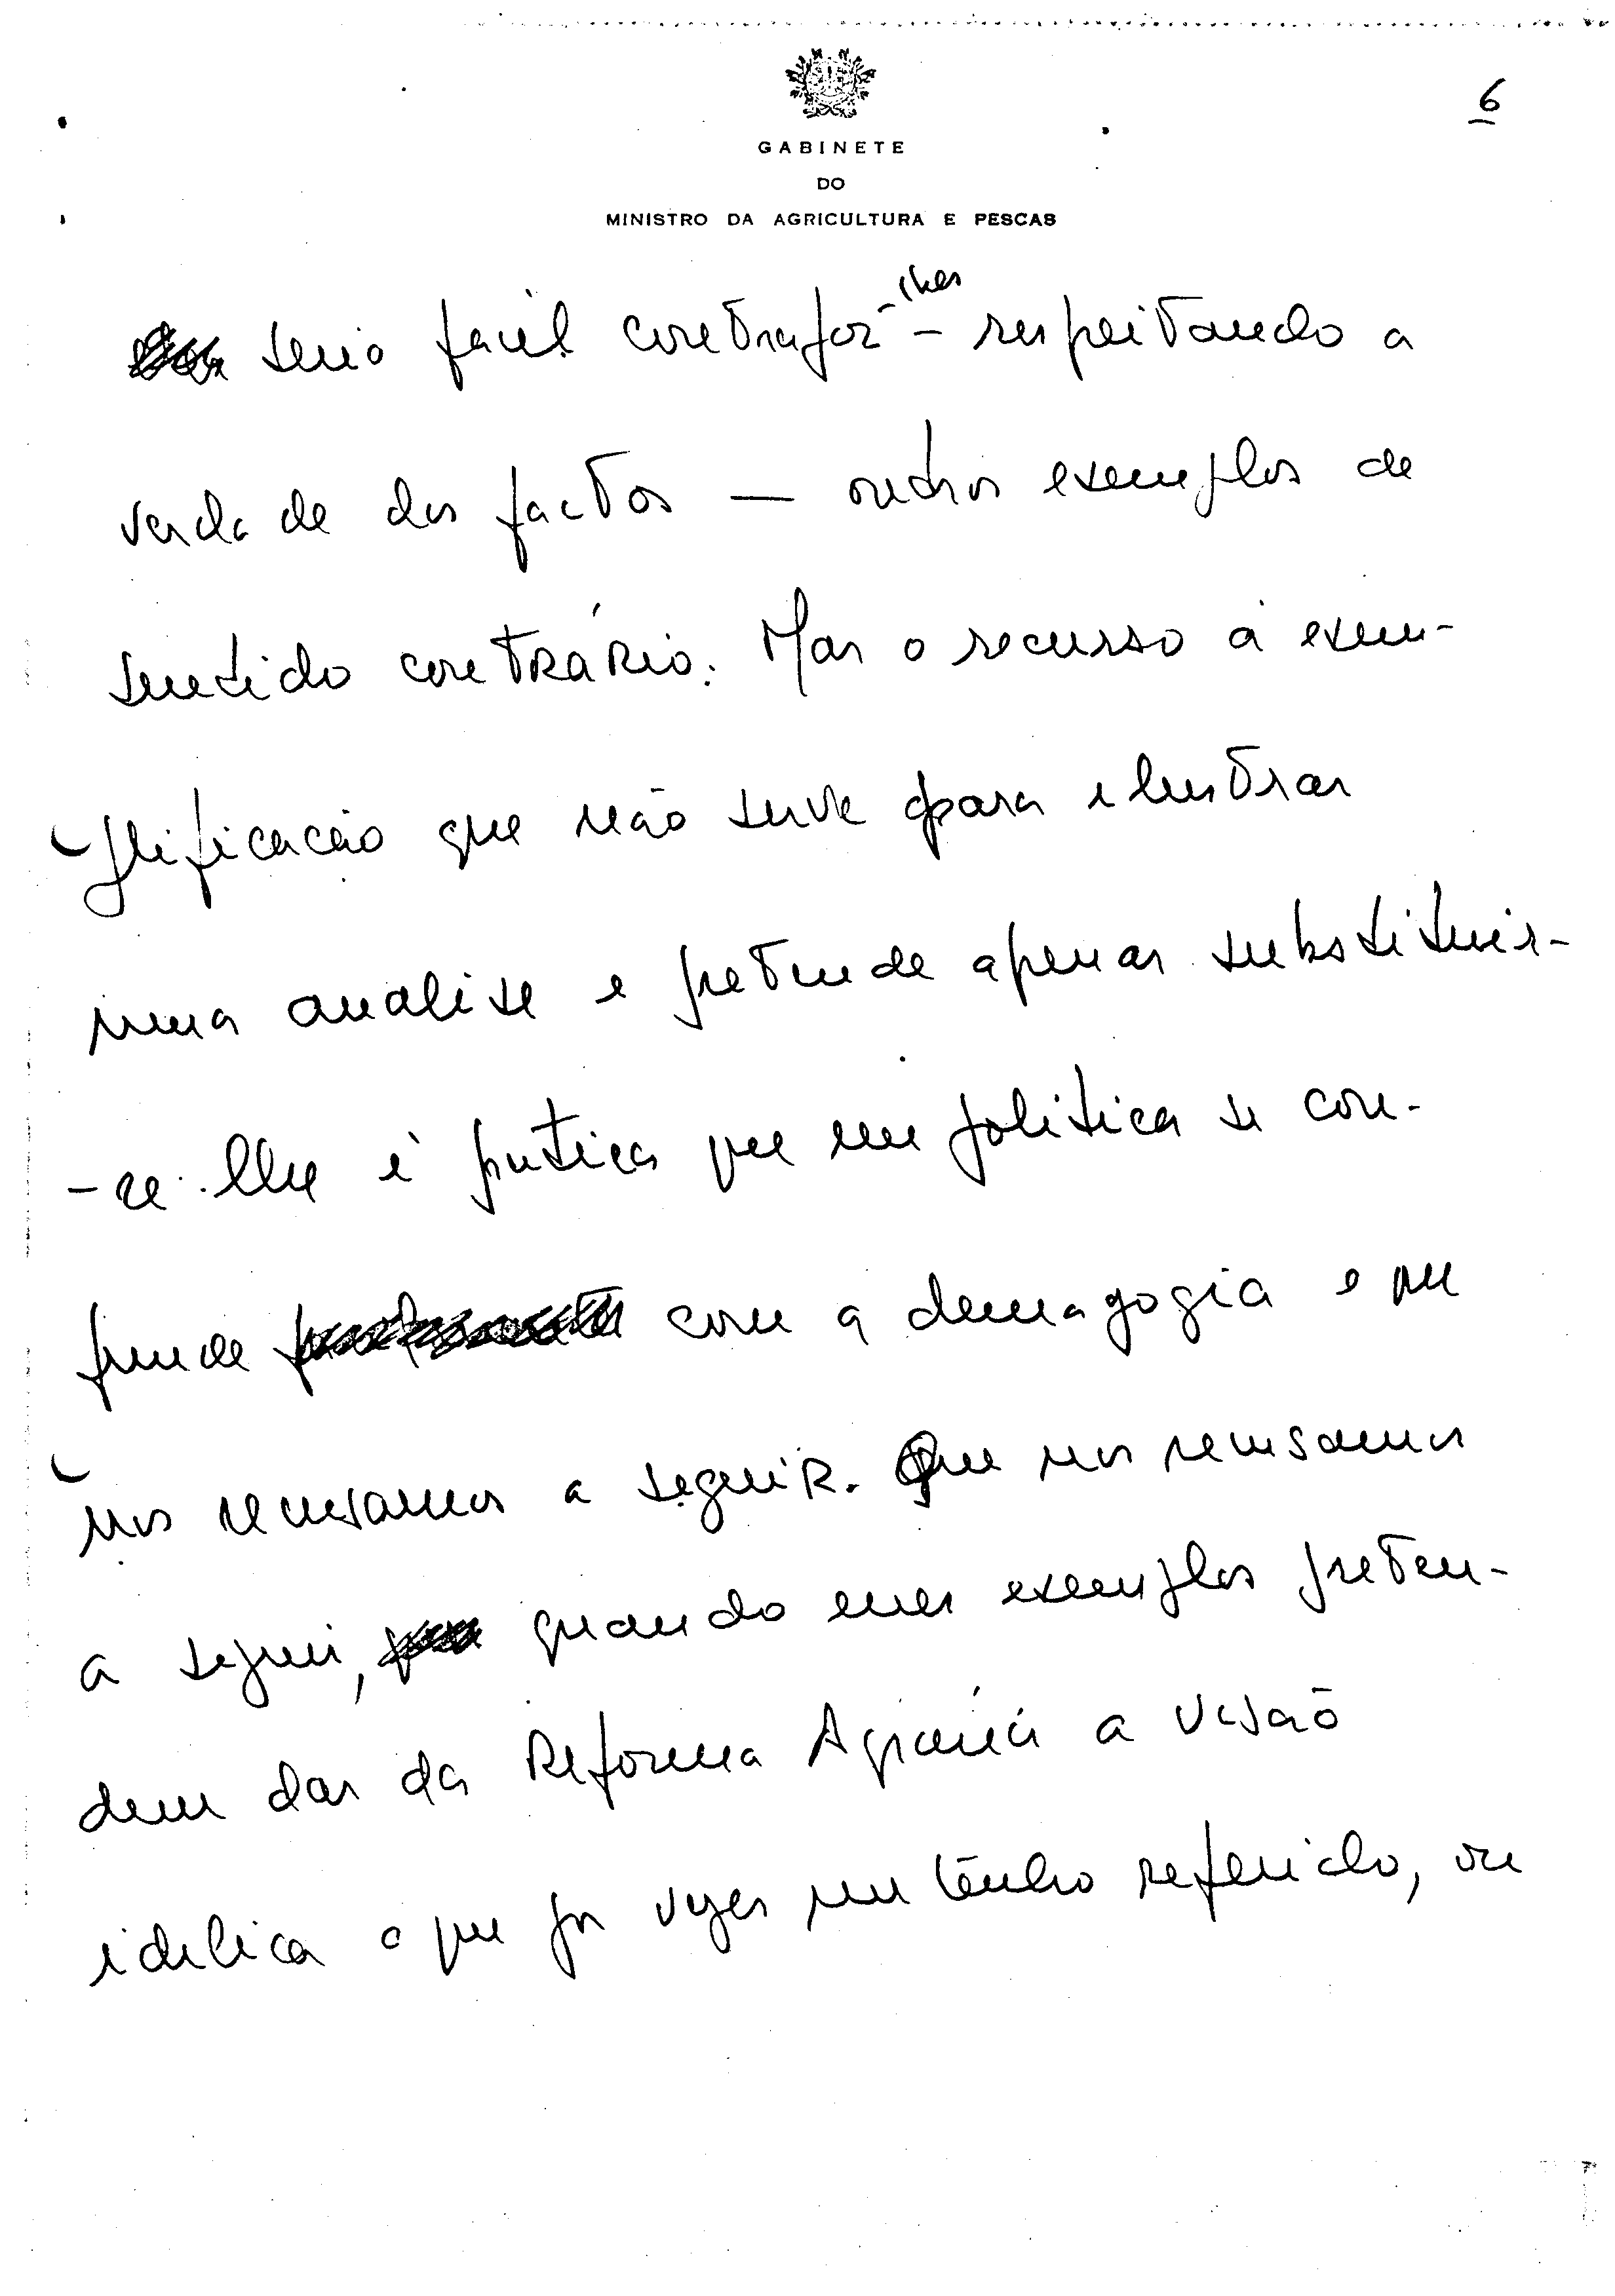 6
GABINETE
DO
MINISTRO DA AGRICULTURA E PESCAS
seria fácil contrapor-lhes – respeitando a
verdade dos factos — outros exemplos de
sentido contrário. Mas o recurso à exem-
plificação que não serve para ilustrar
uma análise e pretende apenas substituir-
-se-lhe é prática que em política se con-
funde com a demagogia e que
nos recusamos a seguir. Que nos recusamos
a seguir, quando esses exemplos preten-
dem dar da Reforma Agrária a visão
idílica a que por vezes me tenho referido, ou